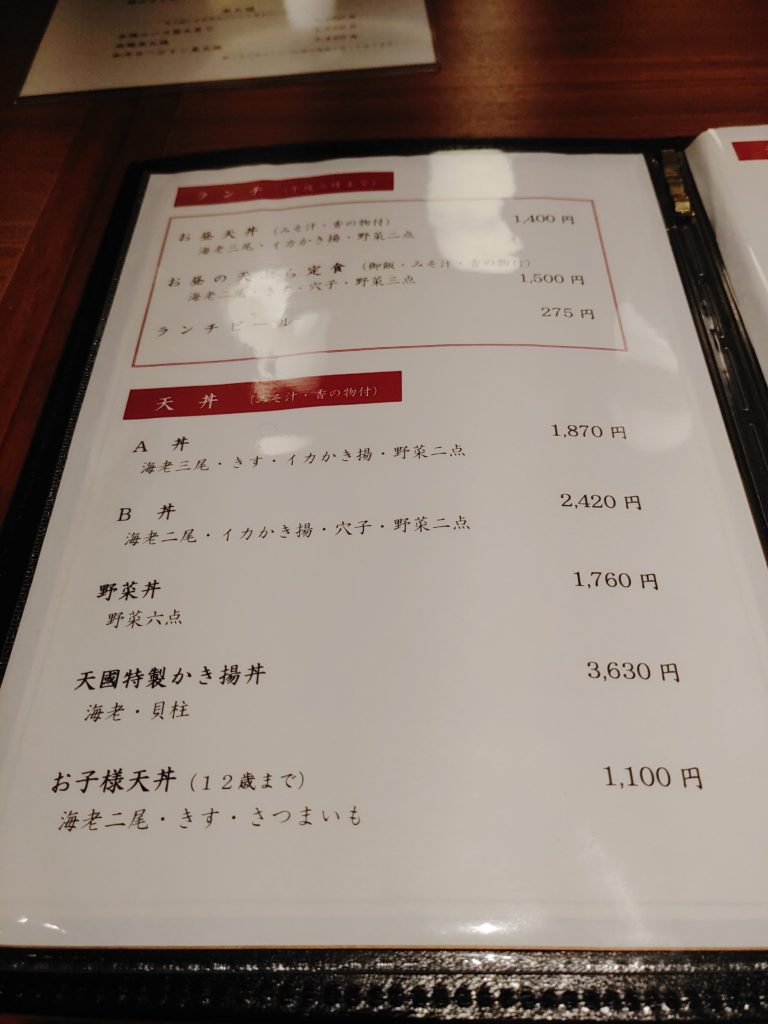 ランチ（午後三時まで）
お昼天丼（みそ汁・香の物付） 1,400円
海老三尾・イカかき揚・野菜二点
お昼の天ぷら定食（御飯・みそ汁・香の物付）
海老二尾・きす・穴子・野菜三点 1,500円
ランチビール 275円
天丼（みそ汁・香の物付）
A丼 1,870円
海老三尾・きす・イカかき揚・野菜二点
B丼 2,420円
海老二尾・イカかき揚・穴子・野菜二点
野菜丼 1,760円
野菜六点
天國特製かき揚丼 3,630円
海老・貝柱
お子様天丼（１２歳まで） 1,100円
海老二尾・きす・さつまいも